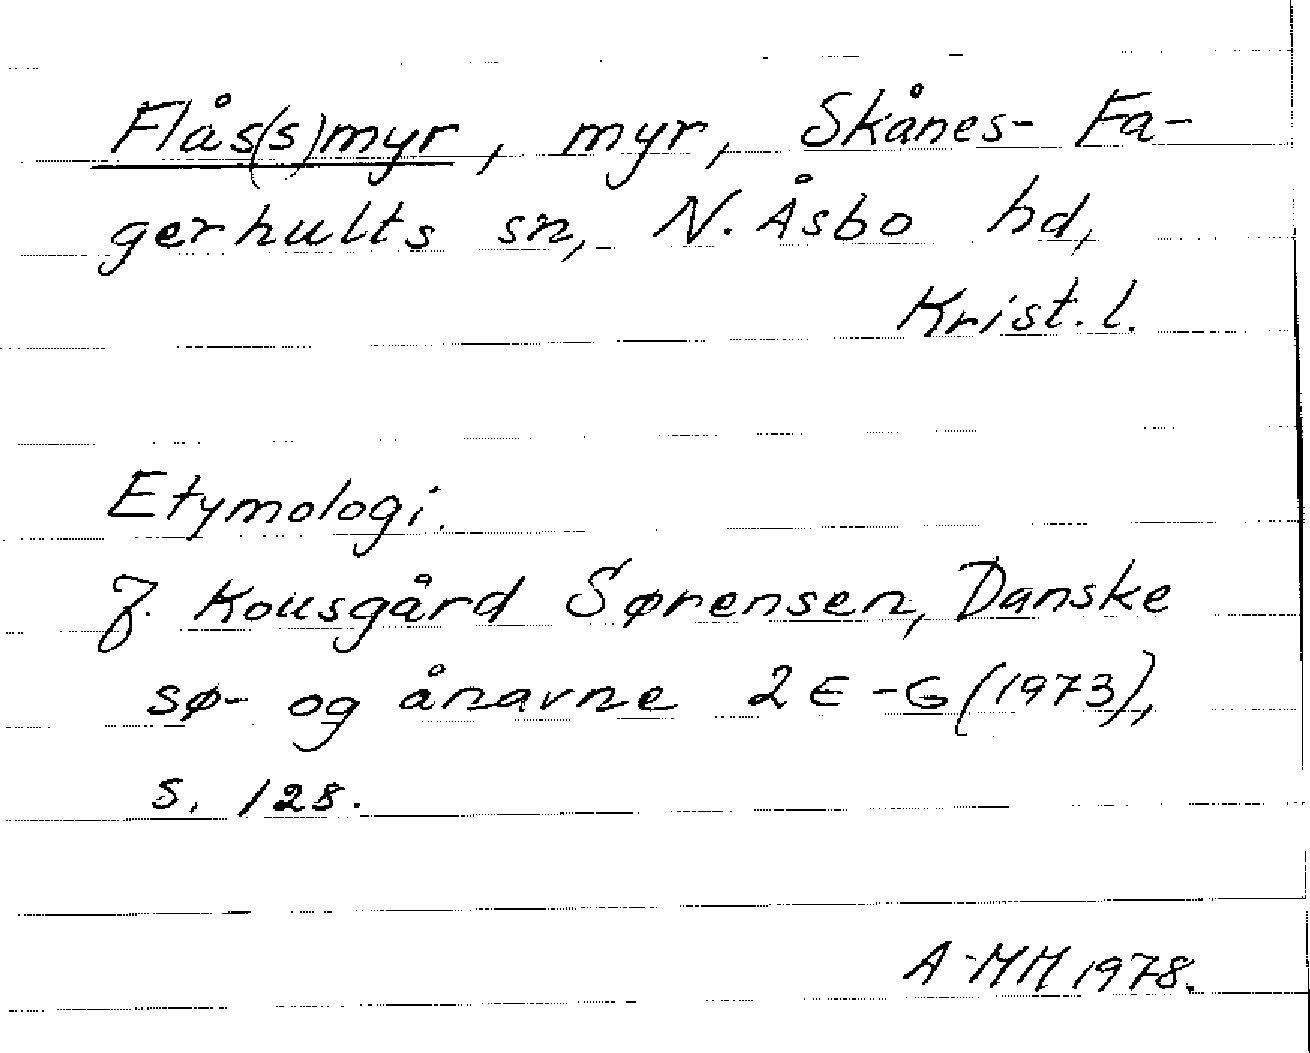 Flås(s)myr, myr, Skånes-Fa-
gerhults sn, N. Åsbo hd,
Krist. l.
Etymologi.
J. Kousgård Sørensen, Danske
sø- og ånavne 2 E-G (1973),
s. 128.
A-MM 1978.